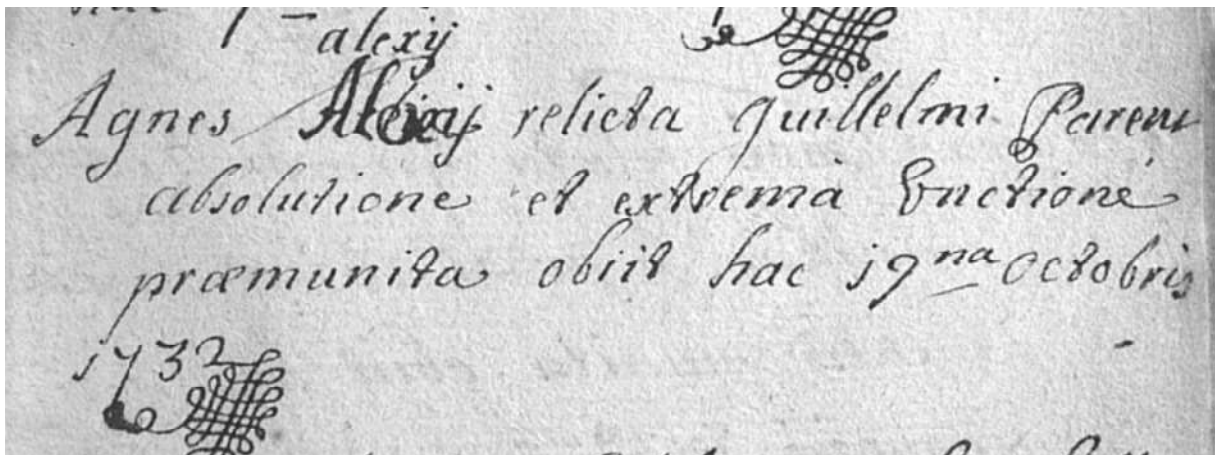 alexij
Agnes Alexij relicta guillelmi Parent
absolutione et extrema Unctione
præmunita obiit hac 19na octobris
1732